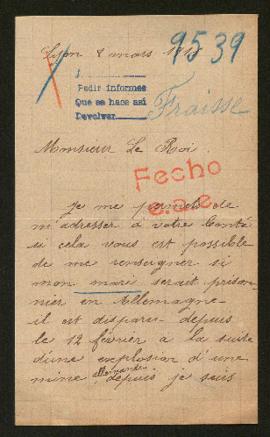 Lyon 2 mars
9539
1
Pedir informes
Que se hace así
Devolver
Fraisse
Monsieur Le Roi.
Fecho
Je me permets de
m'adresser à votre Comté
si cela vous est possible
de me renseigner si
mon mari serait prison
nier en Allemagne
il est disparu depuis
le 12 février à la suite
d'une explosion d'une
mine allemande depuis je suis